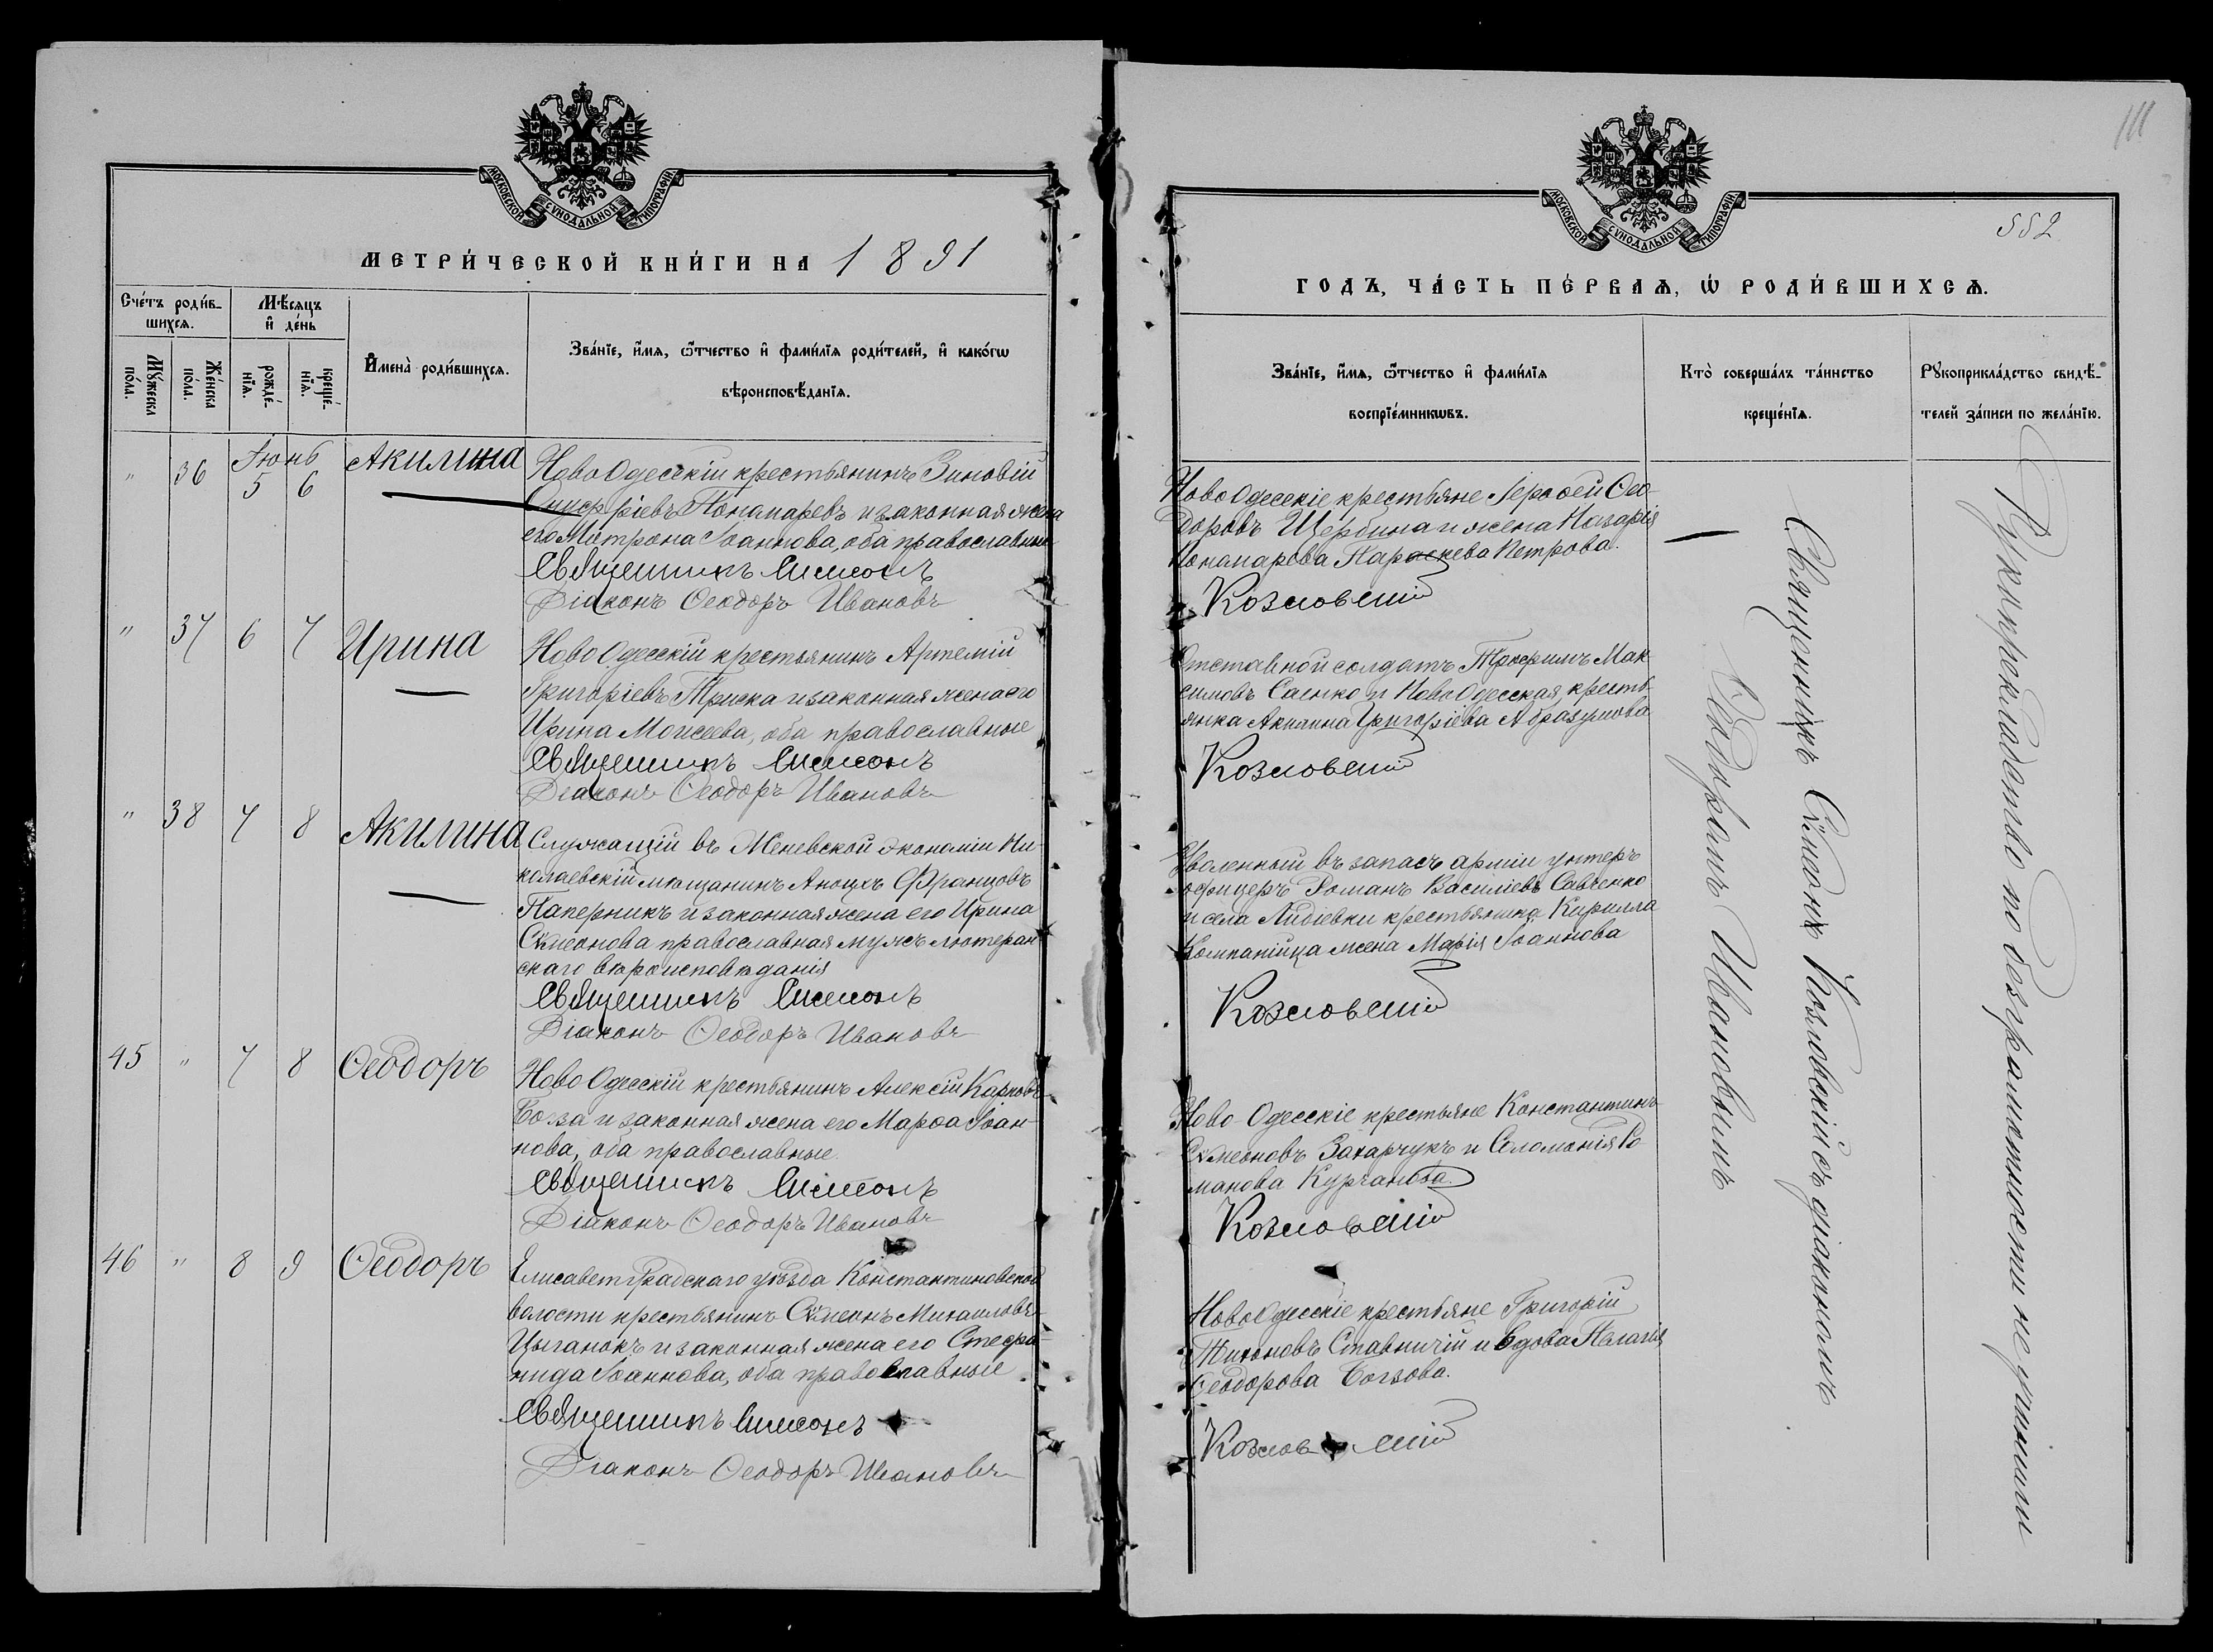 МОСКОВСКОЙ СѴНОДАЛЬНОЙ ТИПОГРАФІИ
МЕТРИ́ЧЕСКОЙ КНИ́ГИ НА 1891
Сче́тъ роди́в-
шихсѧ.
Мѣ́сѧцъ
и҆ де́нь
Мꙋ́жеска
по́ла.
Же́нска
по́ла.
рожде́-
нїѧ.
креще́-
нїѧ.
И҆мена̀ роди́вшихсѧ.
Зва́нїе, и҆́мѧ, ѻ҆́тчество и҆ фами́лїѧ роди́телей, и҆ како́гѡ
вѣроисповѣ́данїѧ.
" 36 Іюнь 5 6 Акилина
НовоОдесскій крестьянинъ Зиновій
Онуфріевъ Пономаревъ и законная жена
его Матрона Іоаннова, оба православные
Священникъ Симеонъ
Діаконъ Ѳеодоръ Ивановъ
" 37 6 7 Ирина
НовоОдесскій крестьянинъ Артемій
Григоріевъ Триска и законная жена его
Ирина Моисеева, оба православные
Священникъ Симеонъ
Діаконъ Ѳеодоръ Ивановъ
" 38 7 8 Акилина
Служащій въ Меневской экономіи Ни-
колаевскій мѣщанинъ Францовъ
Паперникъ и законная жена его Ирина
Сѵмеонова православная мужъ лютеран-
скаго вѣроисповѣданія
Священникъ Симеонъ
Діаконъ Ѳеодоръ Ивановъ
45 " 7 8 Ѳеодоръ
НовоОдесскій крестьянинъ Алексій Карповъ
и законная жена его Марѳа Іоан-
нова, оба православные.
Священникъ Симеонъ
Діаконъ Ѳеодоръ Ивановъ
46 " 8 9 Ѳеодоръ
Елисаветградскаго уѣзда Константиновской
волости крестьянинъ Сѵмеонъ Михаиловъ
Цыганокъ и законная жена его Стефа-
нида Іоаннова, оба православные
Священникъ Симеонъ
Діаконъ Ѳеодоръ Ивановъ
111
552
МОСКОВСКОЙ СѴНОДАЛЬНОЙ ТИПОГРАФІИ
ГОДЪ, ЧА́СТЬ ПЕ́РВАѦ, Ѡ҆ РОДИ́ВШИХСѦ.
Зва́нїе, и҆́мѧ, ѻ҆́тчество и҆ фами́лїѧ
воспрїе́мникѡвъ.
Кто̀ соверша́лъ та́инство
креще́нїѧ.
Рꙋкоприкла́дство свидѣ́-
телей за́писи по жела́нїю.
НовоОдесскіе крестьяне Іероѳей Ѳео-
доровъ Щербина и жена Назарія
Пономарева Параскева Петрова.
Козловскій
Отставной солдатъ Трофимъ Мак-
симовъ Саенко и НовоОдесская кресть-
янка Акилина Григоріева Абразумова
Козловскій
Уволенный въ запасъ арміи унтеръ
офицеръ Романъ Василіевъ Савченко
и села Лидіевки крестьянина Кирилла
Компанійца жена Марія Іоаннова
Козловскій
Ново-Одесскіе крестьяне Константинъ
Сѵмеоновъ Захарчукъ и Соломонія Ро-
манова Курганова.
Козловскій
НовоОдесскіе крестьяне Григорій
Тихоновъ Ставничій и вдова Пелагія
Ѳеодорова
Козловскій
Священникъ Сѵмеонъ Козловскій съ діакономъ
Ѳеодоромъ Ивановымъ
Рукоприкладство по безграмотности не учинили